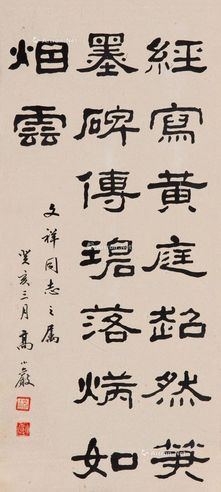 經寫黃庭超然筆
墨碑傳碧落煥如
烟雲
文祥同志之属
癸亥三月 高小巖